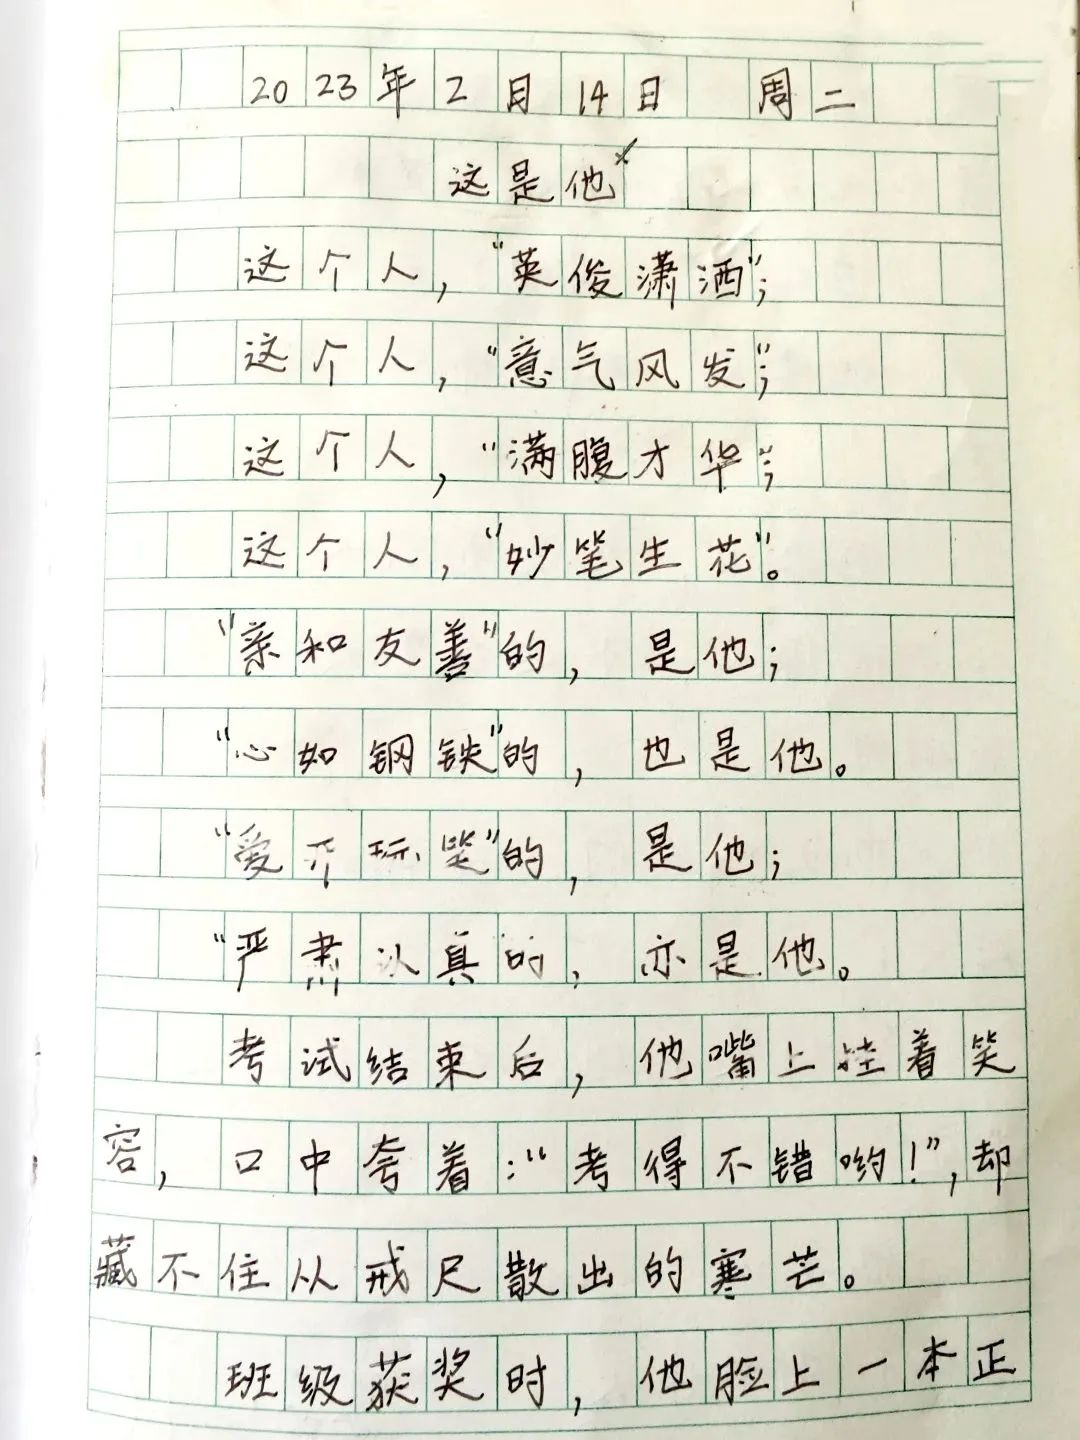 2023年2月14日 周二
这是他
这个人，“英俊潇洒”；
这个人，“意气风发”；
这个人，“满腹才华”；
这个人，“妙笔生花”。
“亲和友善”的，是他；
“心如钢铁”的，也是他。
“爱开玩笑”的，是他；
“严肃认真的，亦是他。
考试结束后，他嘴上挂着笑
容，口中夸着：“考得不错哟！”，却
藏不住从戒尺散出的寒芒。
班级获奖时，他脸上一本正